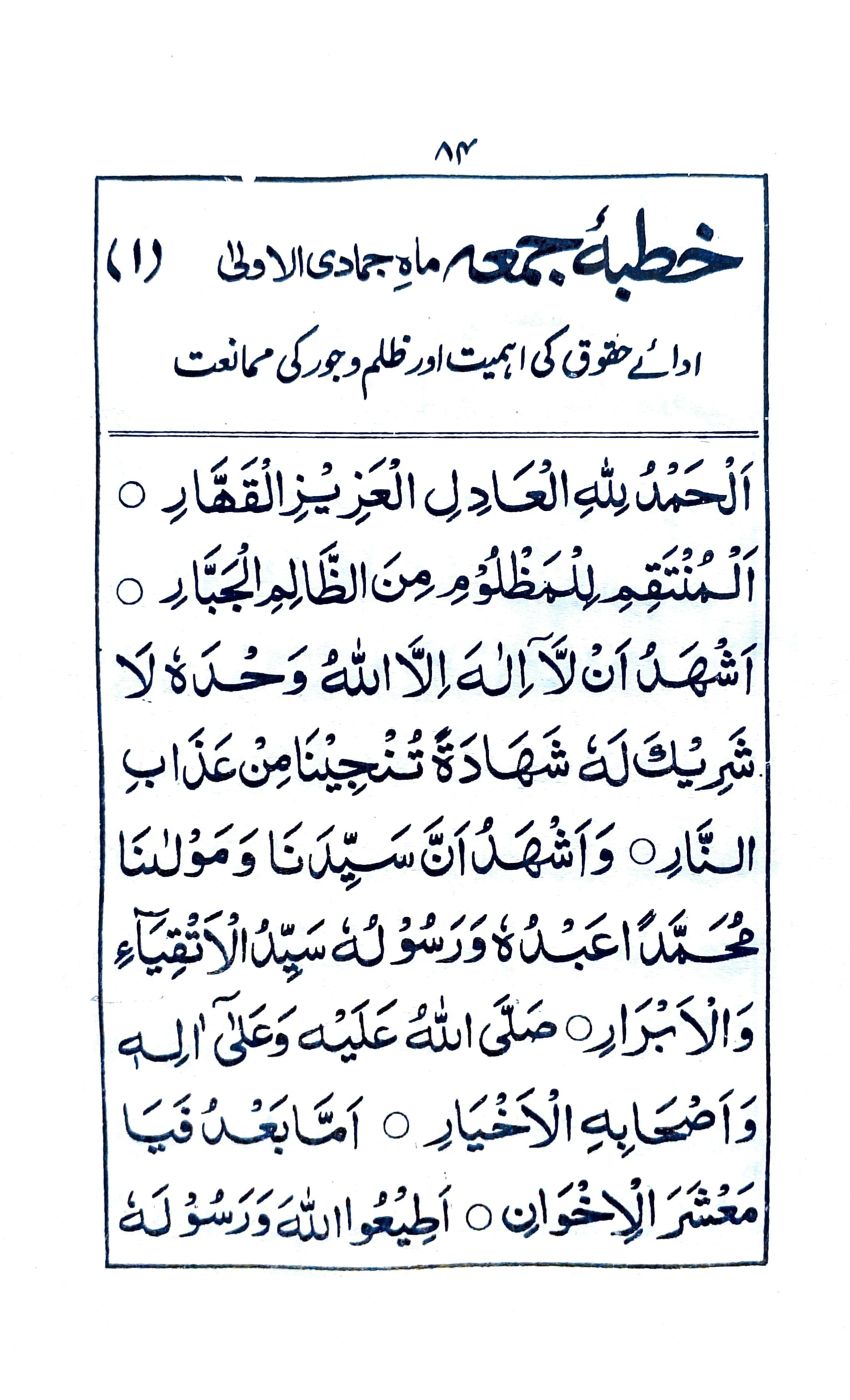 ۸۴
خطبۂ جمعہ ماہِ جمادی الاولیٰ (۱)
ادائے حقوق کی اہمیت اور ظلم و جور کی ممانعت
اَلْحَمْدُ لِلّٰهِ الْعَادِلِ الْعَزِيْزِ الْقَهَّارِ ○
اَلْمُنْتَقِمِ لِلْمَظْلُوْمِ مِنَ الظَّالِمِ الْجَبَّارِ ○
اَشْهَدُ اَنْ لَّآ اِلٰهَ اِلَّا اللّٰهُ وَحْدَهٗ لَا
شَرِيْكَ لَهٗ شَهَادَةً تُنْجِيْنَا مِنْ عَذَابِ
النَّارِ ○ وَاَشْهَدُ اَنَّ سَيِّدَنَا وَمَوْلٰىنَا
مُحَمَّدًا عَبْدُهٗ وَرَسُوْلُهٗ سَيِّدُ الْاَتْقِيَآءِ
وَالْاَبْرَارِ ○ صَلَّى اللّٰهُ عَلَيْهِ وَعَلٰٓى اٰلِهٖ
وَاَصْحَابِهِ الْاَخْيَارِ ○ اَمَّا بَعْدُ فَيَا
مَعْشَرَ الْاِخْوَانِ ○ اَطِيْعُوا اللّٰهَ وَرَسُوْلَهٗ